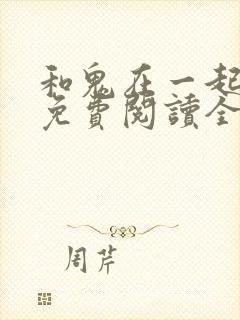 和鬼在一起
免費閱讀全
周芹